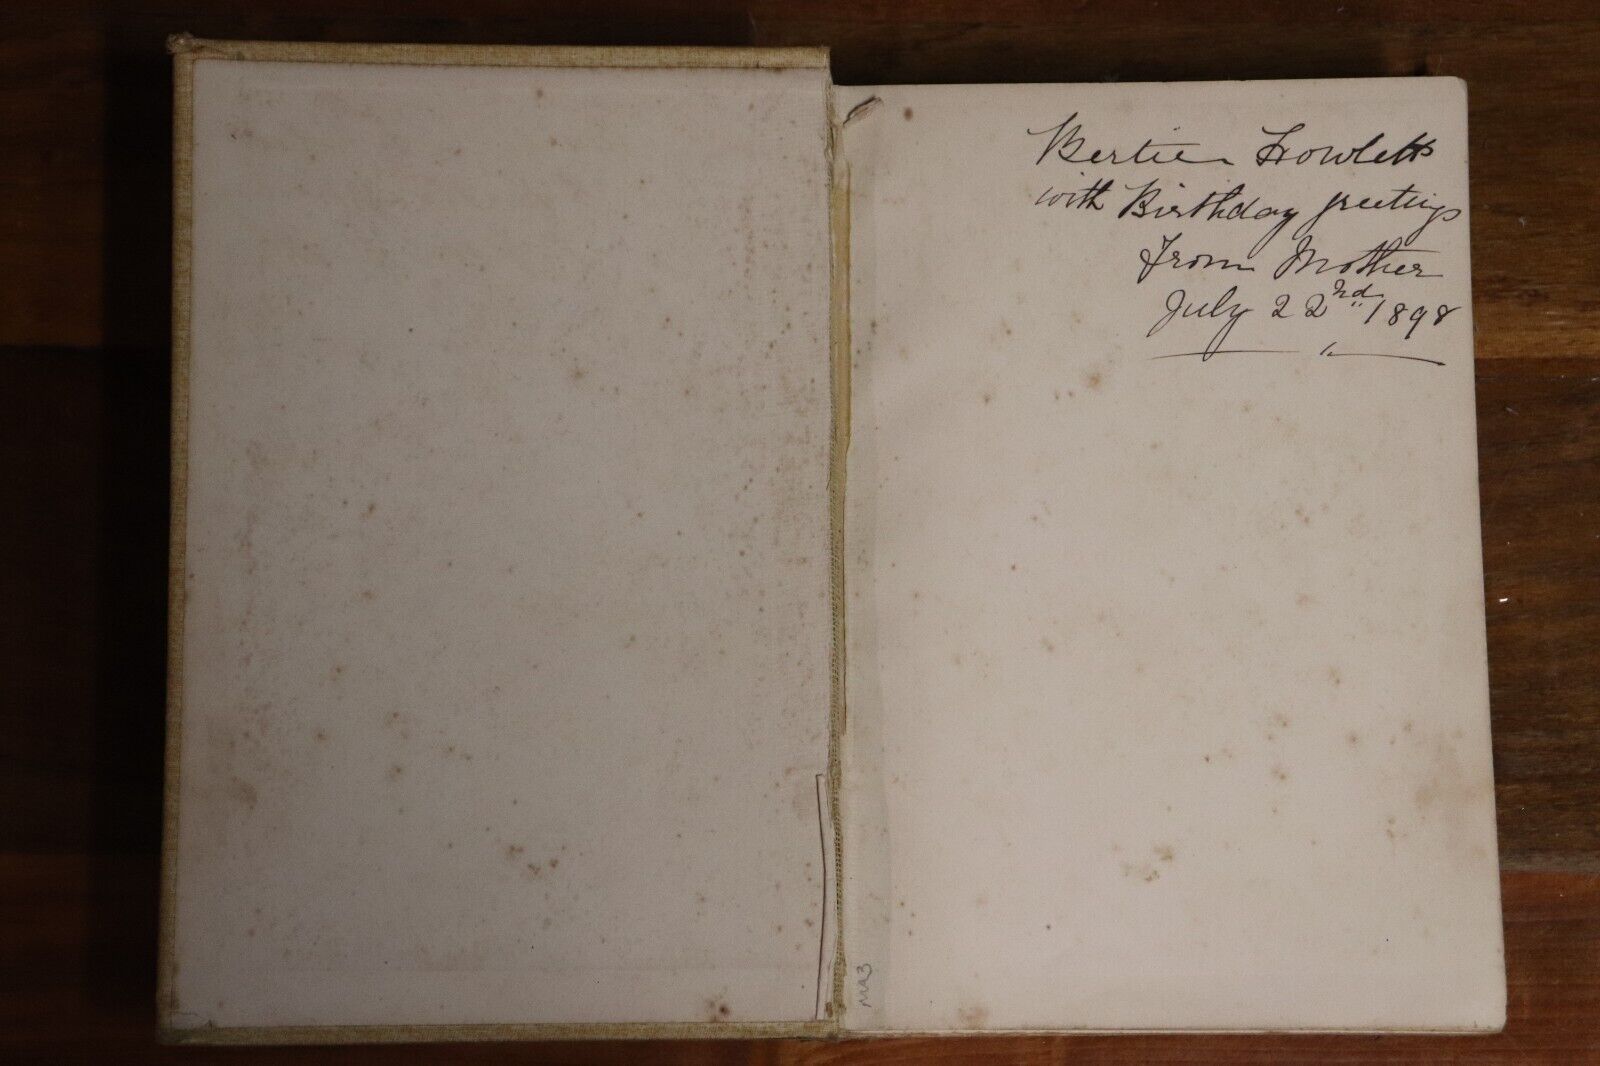 Bertie Howletts
with Birthday greetings
From Mother
July 22nd 1898
MA3